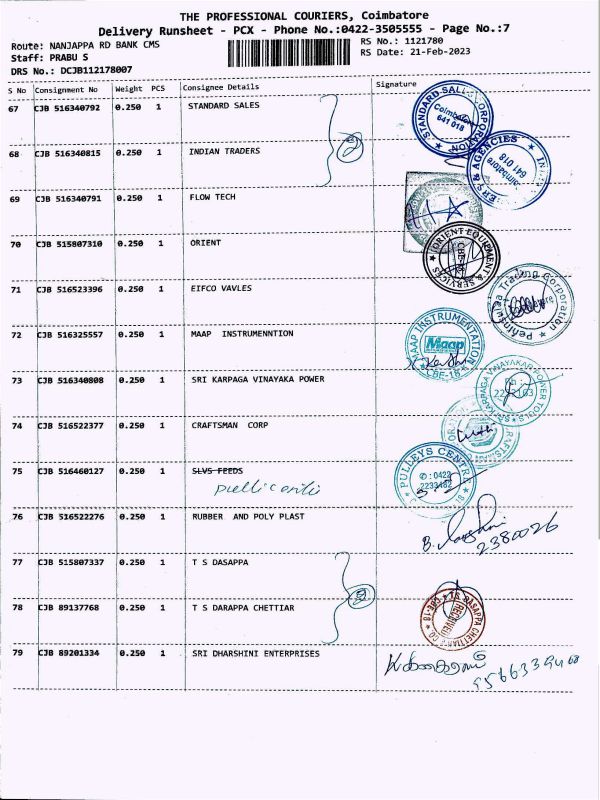 THE PROFESSIONAL COURIERS, Coimbatore
Delivery Runsheet - PCX - Phone No.:0422-3505555 - Page No.:7
Route: NANJAPPA RD BANK CMS
RS No.: 1121780
Staff: PRABU S
RS Date: 21-Feb-2023
DRS No.: DCJB112178007
S No Consignment No Weight PCS Consignee Details Signature
67 CJB 516340792 0.250 1 STANDARD SALES
STANDARD SALES CORPORATION
Coimbatore
641 018
68 CJB 516340815 0.250 1 INDIAN TRADERS
& AGENCIES
641 018
69 CJB 516340791 0.250 1 FLOW TECH
70 CJB 515807310 0.250 1 ORIENT
ORIENT EQUIPMENT & SERVICES
71 CJB 516523396 0.250 1 EIFCO VAVLES
Trading Corporation
72 CJB 516325557 0.250 1 MAAP INSTRUMENNTION
MAAP INSTRUMENTATION
Maap
CBE-18
73 CJB 516340808 0.250 1 SRI KARPAGA VINAYAKA POWER
KARPAGA VINAYAKAR POWER TOOLS
74 CJB 516522377 0.250 1 CRAFTSMAN CORP
75 CJB 516460127 0.250 1 SLVS FEEDS
PULLEYS CENTRE
: 0422
2233482
76 CJB 516522276 0.250 1 RUBBER AND POLY PLAST
2380026
77 CJB 515807337 0.250 1 T S DASAPPA
78 CJB 89137768 0.250 1 T S DARAPPA CHETTIAR
T.S. DASAPPA CHETTIAR & CO
RECEIVED
CBE-18
79 CJB 89201334 0.250 1 SRI DHARSHINI ENTERPRISES